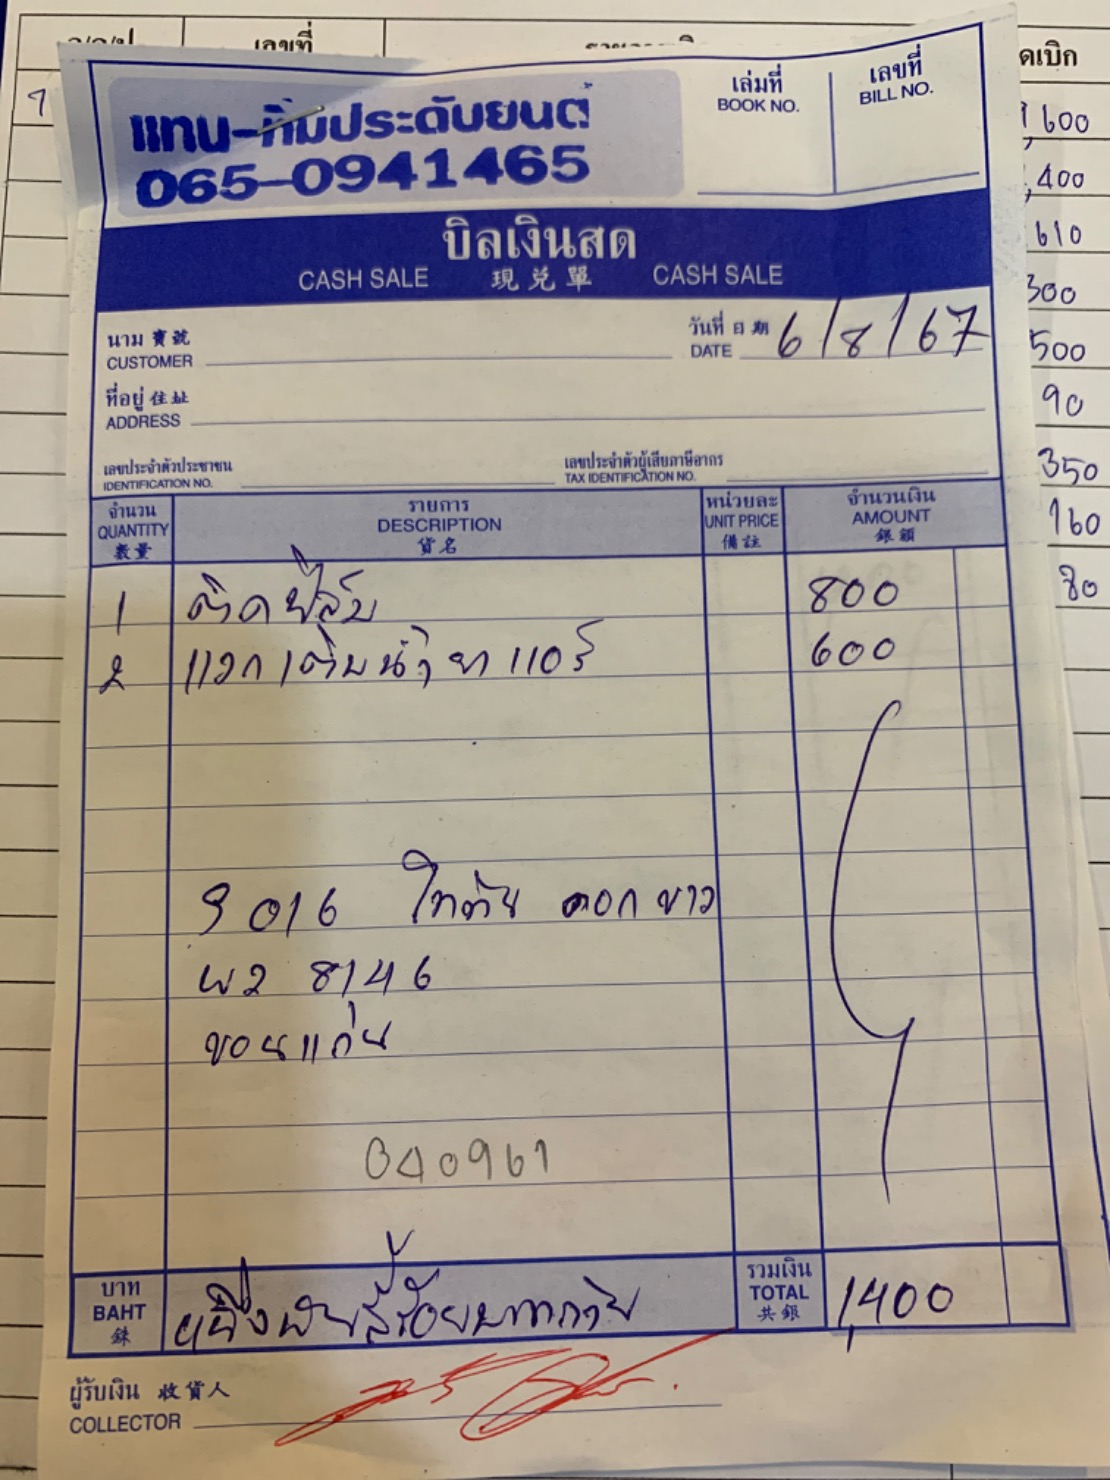 ว/ด/ป เลขที่
แทน-ทิมประดับยนต์
065-0941465
เล่มที่
BOOK NO.
เลขที่
BILL NO.
บิลเงินสด
CASH SALE 現兑單 CASH SALE
นาม 寶號
CUSTOMER
วันที่ 日期
DATE 6/8/67
ที่อยู่ 住址
ADDRESS
เลขประจำตัวประชาชน
IDENTIFICATION NO.
เลขประจำตัวผู้เสียภาษีอากร
TAX IDENTIFICATION NO.
จำนวน
QUANTITY
數量
รายการ
DESCRIPTION
貨名
หน่วยละ
UNIT PRICE
備註
จำนวนเงิน
AMOUNT
銀額
1 ติดฟิล์ม 800
2 แวกเติมน้ำยาแอร์ 600
9016 ไทตัน ดอกขาว
ผว 8146
ขอนแก่น
040961
บาท
BAHT
銖
หนึ่งพันสี่ร้อยบาทถ้วน
รวมเงิน
TOTAL
共銀
1,400
ผู้รับเงิน 收貨人
COLLECTOR
ดเบิก
600
,400
610
300
500
90
350
160
80